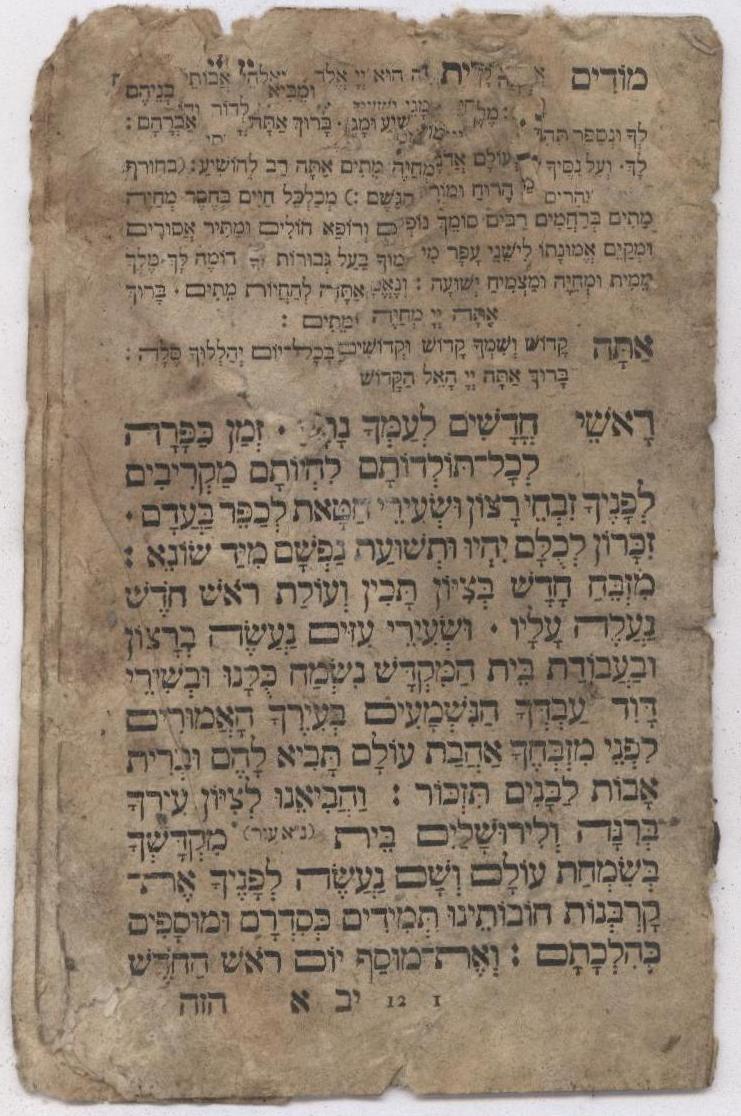 מוֹדִים
לְךָ וּנְסַפֵּר בָּרוּךְ אַתָּה אַבְרָהָם :
לָךְ . וְעַל נִסֶּיךָ עוֹלָם מְחַיֵּה מֵתִים אַתָּה רַב לְהוֹשִׁיעַ : (בחורף
הָרוּחַ הַגֶּשֶׁם :) מְכַלְכֵּל חַיִּים בְּחֶסֶד מְחַיֵּה
מֵתִים בְּרַחֲמִים רַבִּים סוֹמֵךְ וְרוֹפֵא חוֹלִים וּמַתִּיר אֲסוּרִים
וּמְקַיֵּם אֱמוּנָתוֹ לִישֵׁנֵי עָפָר מִי בַּעַל גְּבוּרוֹת דּוֹמֶה לָּךְ . מֶלֶךְ
מֵמִית וּמְחַיֶּה וּמַצְמִיחַ יְשׁוּעָה : אַתָּה לְהַחֲיוֹת מֵתִים . בָּרוּךְ
אַתָּה יְיָ מְחַיֵּה
אַתָּה קָדוֹשׁ וְשִׁמְךָ קָדוֹשׁ וּקְדוֹשִׁים בְּכָל־יוֹם יְהַלְלוּךָ סֶּלָה :
בָּרוּךְ אַתָּה יְיָ הָאֵל הַקָּדוֹשׁ
רָאשֵׁי חֳדָשִׁים לְעַמְּךָ . זְמַן כַּפָּרָה
לְכָל־תּוֹלְדוֹתָם לִהְיוֹתָם מַקְרִיבִים
לְפָנֶיךָ זִבְחֵי רָצוֹן וּשְׂעִירֵי חַטָּאת לְכַפֵּר בַּעֲדָם .
זִכָּרוֹן לְכֻלָּם יִהְיוּ וּתְשׁוּעַת נַפְשָׁם מִיַּד שׂוֹנֵא :
מִזְבֵּחַ חָדָשׁ בְּצִיּוֹן תָּכִין וְעוֹלַת רֹאשׁ חֹדֶשׁ
נַעֲלֶה עָלָיו . וּשְׂעִירֵי עִזִּים נַעֲשֶׂה בְרָצוֹן
וּבַעֲבוֹדַת בֵּית הַמִּקְדָּשׁ נִשְׂמַח כֻּלָּנוּ וּבְשִׁירֵי
דָּוִד עַבְדְּךָ הַנִּשְׁמָעִים בְּעִירֶךָ הָאֲמוּרִים
לִפְנֵי מִזְבְּחֶךָ אַהֲבַת עוֹלָם תָּבִיא לָהֶם וּבְרִית
אָבוֹת לַבָּנִים תִּזְכּוֹר : וַהֲבִיאֵנוּ לְצִיּוֹן עִירְךָ
בְּרִנָּה וְלִירוּשָׁלַיִם בֵּית (נ״א עיר) מִקְדָּשְׁךָ
בְּשִׂמְחַת עוֹלָם וְשָׁם נַעֲשֶׂה לְפָנֶיךָ אֶת־
קָרְבְּנוֹת חוֹבוֹתֵינוּ תְּמִידִים כְּסִדְרָם וּמוּסָפִים
כְּהִלְכָתָם : וְאֶת־מוּסַף יוֹם רֹאשׁ הַחֹדֶשׁ
1 12 יב א הזה